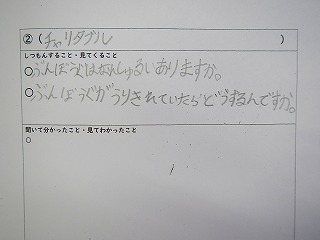 ②（チャリタブル）
しつもんすること・見てくること
○ぶんぼうぐはなんしゅるいありますか。
○ぶんぼうぐがうりきれていたらどうするんですか。
聞いて分かったこと・見てわかったこと
○